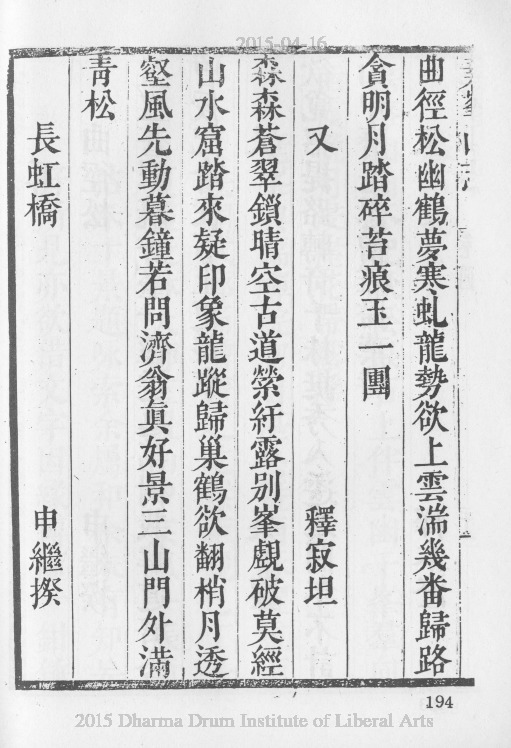 2015-04-16
曲徑松幽鶴夢寒虬龍勢欲上雲湍幾畨歸路
貪明月踏碎苔痕玉一團
又　釋寂坦
森森蒼翠鎖晴空古道縈紆露别峯覷破莫經
山水窟踏來疑印象龍蹤歸巢鶴欲翻梢月透
壑風先動暮鐘若問濟翁眞好景三山門外滿
靑松
長虹橋　申繼揆
194
2015 Dharma Drum Institute of Liberal Arts